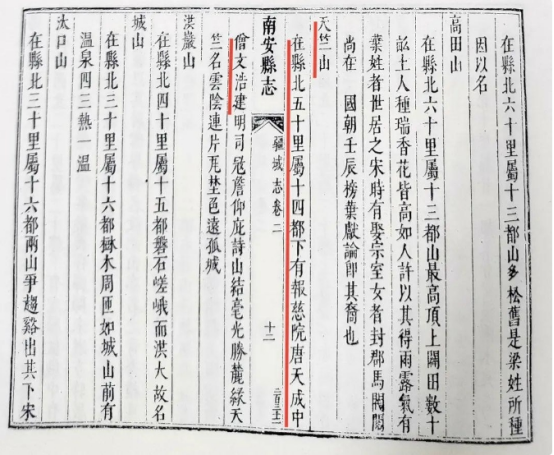 在縣北六十里屬十三都山多松舊是梁姓所種
因以名
高田山
在縣北六十里屬十三都山最高頂上闢田數十
畝土人種瑞香花皆高如人許以其得雨露氣有
葉姓者世居之宋時有娶宗室女者封郡馬閥閱
尚在 國朝壬辰榜葉獻論即其裔也
天竺山
在縣北五十里屬十四都下有報慈院唐天成中
南安縣志
疆域志卷二
十二
僧文浩建明司寇詹仰庇詩山結毫光勝麓緣天
竺名雲陰連片瓦埜色遠孤城
洪巖山
在縣北四十里屬十五都磊石嵯峨而洪大故名
城山
在縣北三十里屬十六都林木周匝如城山前有
溫泉四三熱一溫
太口山
在縣北三十里屬十六都兩山爭趨谿出其下宋